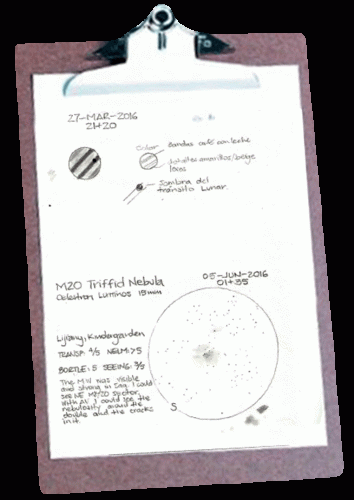 27-MAR-2016
21+20
Color
Bandas café con leche
Sombra del
tránsito Lunar
M20 Triffid Nebula
Celestron Luminos 15mm
05-JUN-2016
01+35
Lijiang, Kindergarden
TRANSP: 4/5 NELM: >5
BORTLE: 5 SEEING: 3/5
The M.W was visible
and strong in Sag. I could
see NE M8/20 sector,
with AV I could see the
nebulosity around the
double and the cracks
in it.
S